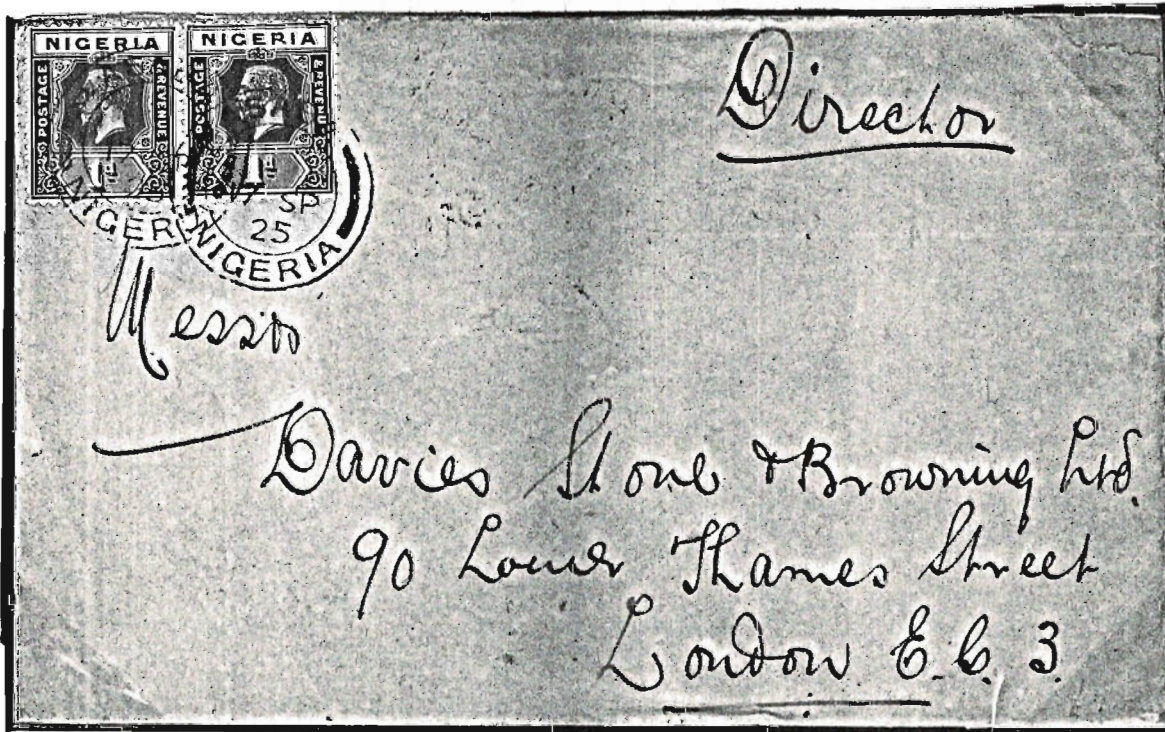 NIGERIA NIGERIA
POSTAGE & REVENUE POSTAGE & REVENUE
1d 1d
SP
25
NIGER NIGERIA
Director
Messrs
Davies Stone & Browning Ltd.
90 Lower Thames Street
London E.C. 3.